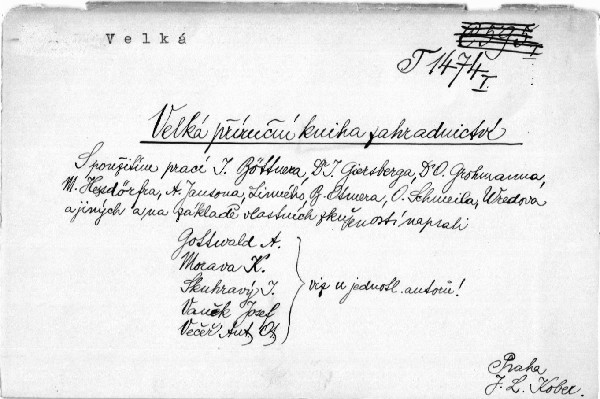 Velká
T 1474
I.
Velká příruční kniha zahradnictví
S použitím prací J. Böttnera, Dr J. Giersberga, Dr O. Grohmanna,
M. Hesdörfra, A. Jansona, Živného, B. Stmera, O. Schmeila, Wredova
a jiných a na základě vlastních zkušeností napsali
Gottwald A.
Morava K.
Skuhravý J.
Vaněk Josef
Večeř Ant. Ot.
viz u jednotl. autorů!
Praha
J. L. Kober.